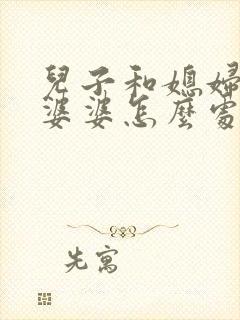 兒子和媳婦
婆婆怎麼處
先寓